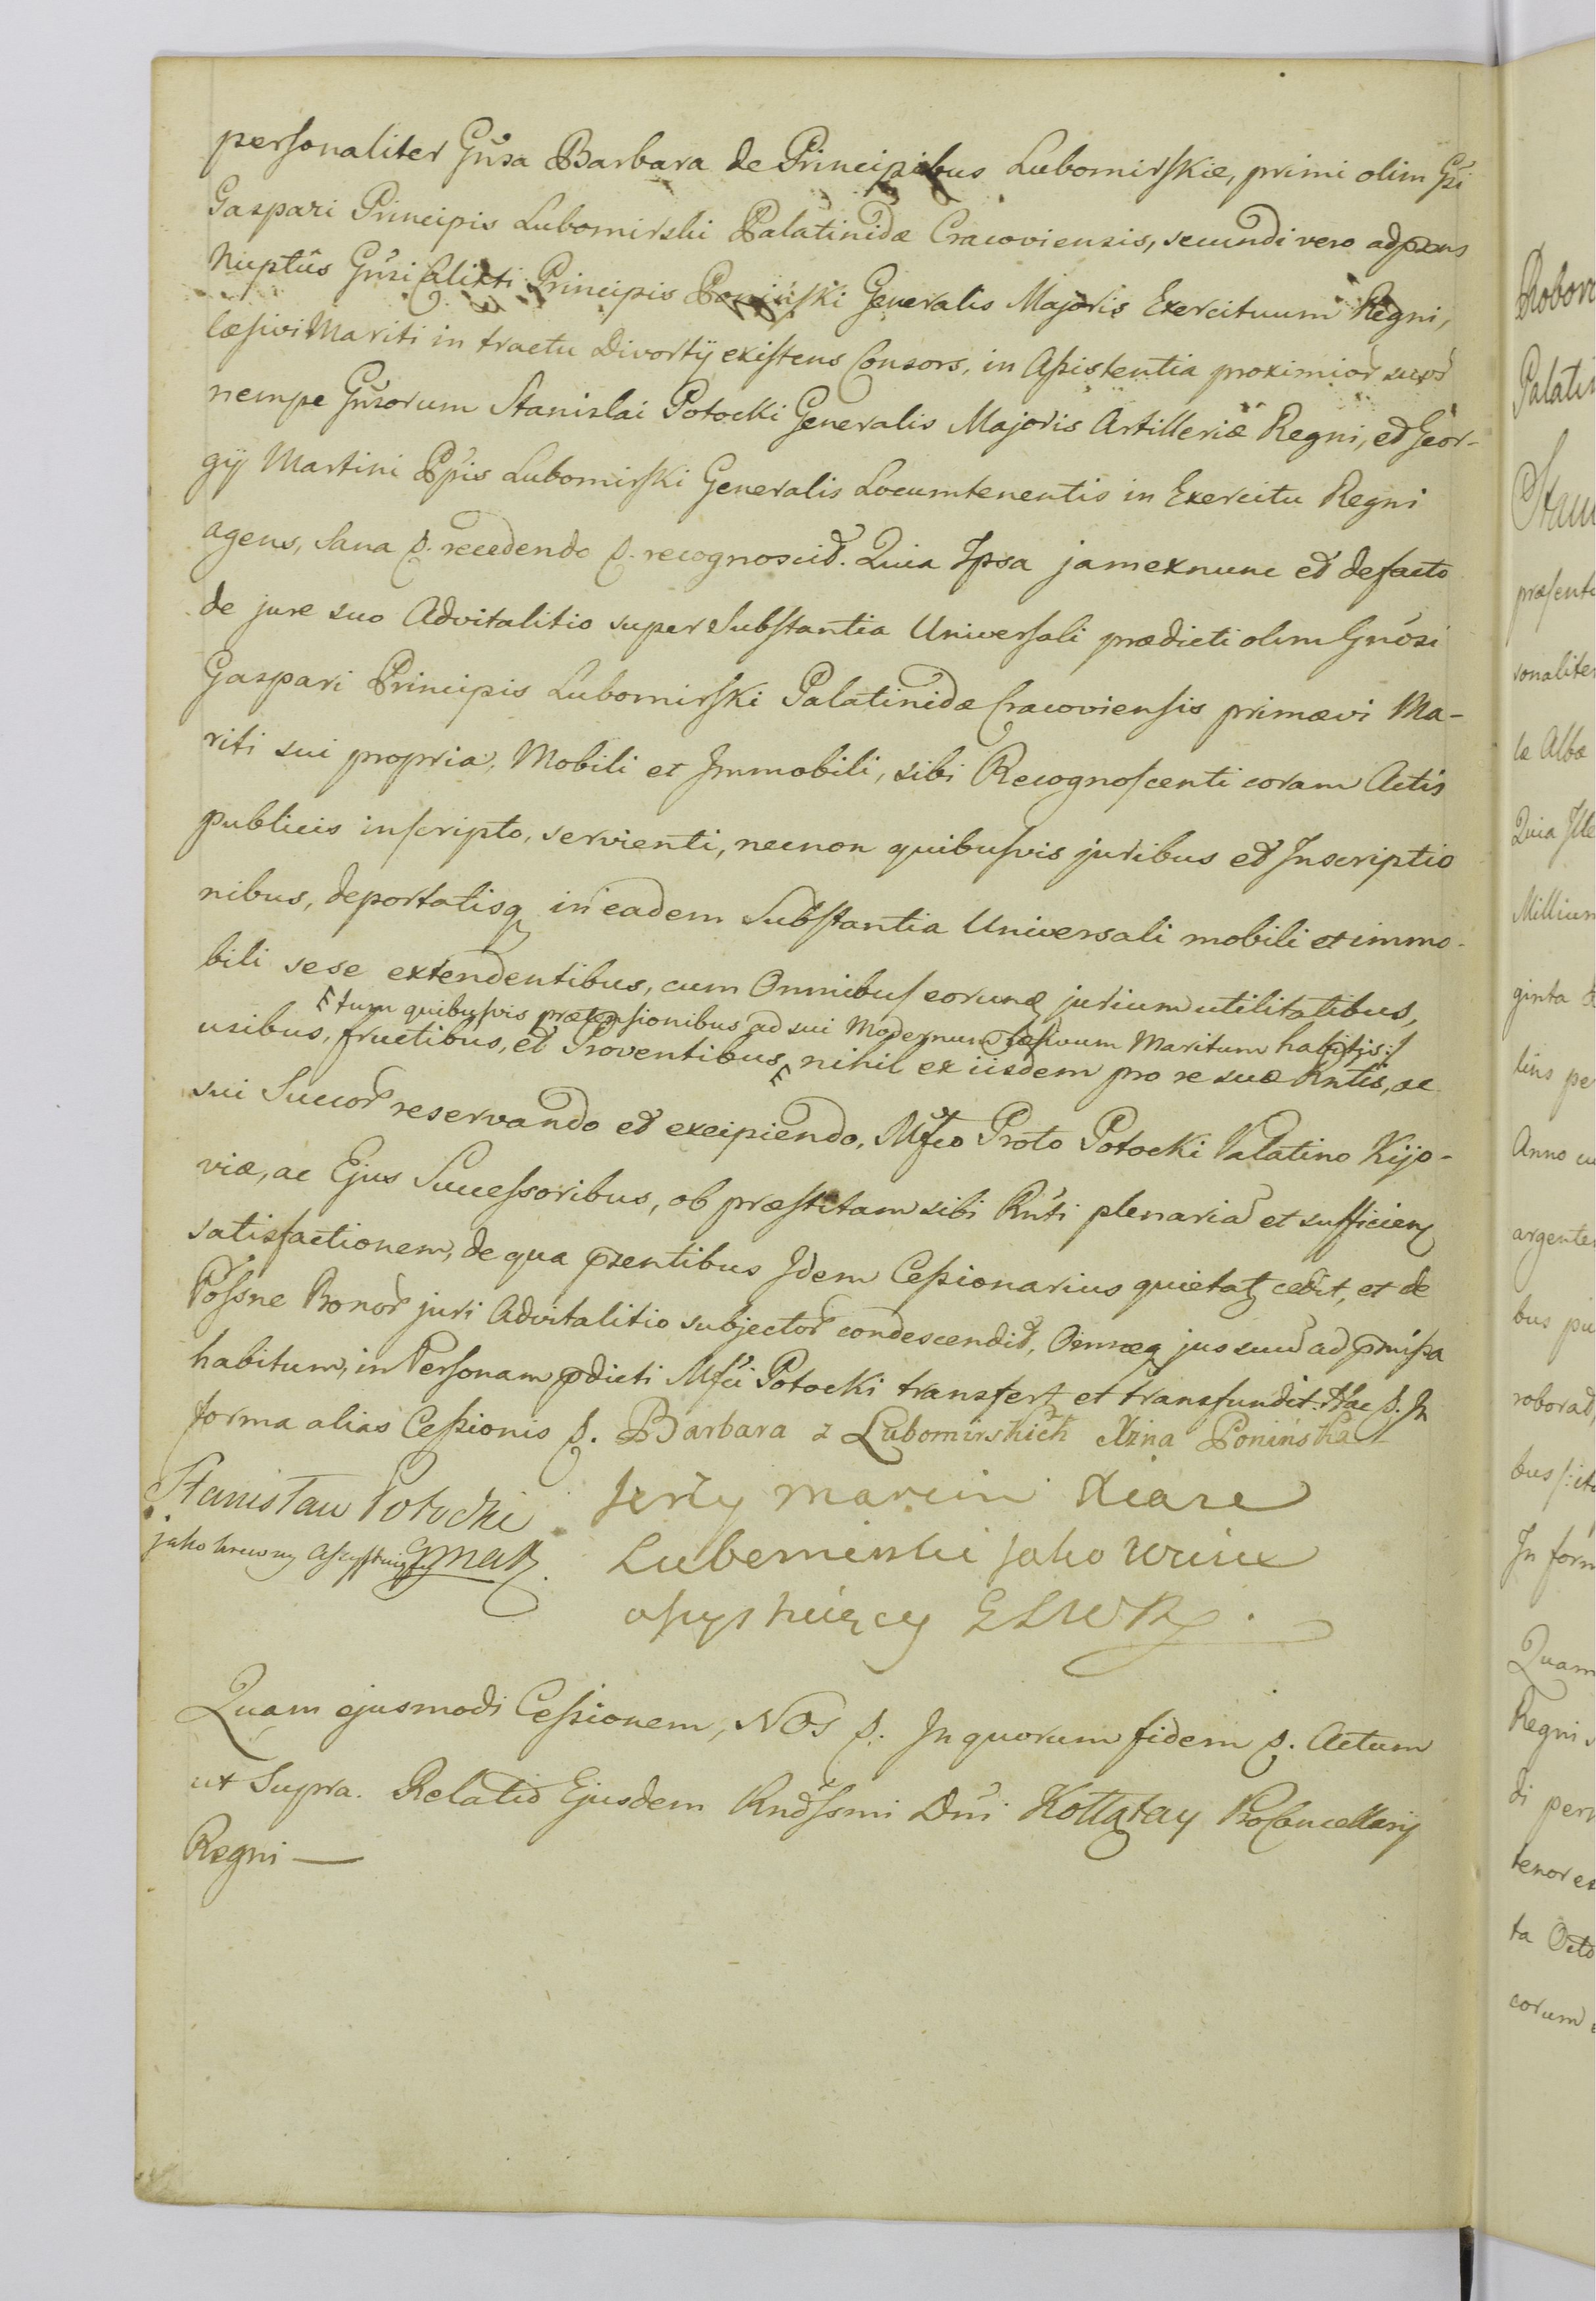 personaliter Gñsa Barbara de Principibus Lubomirskie, primi olim Gñsi
Gaspari Principis Lubomirski Palatinidæ Cracoviensis, secundi vero ad præns
Nuptus Gñsi Calixti Principis Poniński Generalis Majoris Exercituum Regni,
læsivi Mariti in tractu Divortÿ existens Consors, in Assistentia proximior suor
nempe Gñsorum Stanislai Potocki Generalis Majoris Artilleriæ Regni, et Geor-
gÿ Martini Ppis Lubomirski Generalis Locumtenentis in Exercitu Regni
agens, Sana p. recedendo p. recognoscit. Quia Ipsa jam ex nunc et de facto
de jure suo Advitalitio super Substantia Universali prædicti olim Gnosi
Gaspari Principis Lubomirski Palatinidæ Cracoviensis primævi Ma-
riti sui propria, Mobili et Immobili, sibi Recognoscenti coram Actis
publicis inscripto, servienti, necnon quibusvis juribus et Inscriptio
nibus, deportatisq in eadem Substantia Universali mobili et immo-
bili sese extendentibus, cum Omnibus eorunq jurium utilitatibus,
tum quibusvis prætensionibus ad sui Modernum læsivum Maritum habitis:/
usibus, fructibus, et Proventibus, nihil ex iisdem pro re suæ Rntis, ac
sui Succor reservando et excipiendo, Mfco Proto Potocki Palatino Kijo-
viæ, ac Ejus Successoribus, ob præstitam sibi Rnti plenaria et sufficien
satisfactionem, de qua præntibus Idem Cessionarius quietat, cedit, et de
Possne Bonor juri Advitalitio subjector condescendit, Omneq jus suu ad præmissa
habitum, in Personam pdicti Mfci Potocki transfert et transfundit. Hac p. In
forma alias Cessionis p. Barbara z Lubomirskich Xżna Ponińska
Stanisław Potocki
jako krewny asystuiący GMAK.
Jerzy Marcin Xiąże
Lubomirski jako wuiu
asystuiący GLWK.
Quam ejusmodi Cessionem, Nos p. In quorum fidem p. Actum
ut Supra. Relatio Ejusdem Rndssmi Dni Kołłątay ProCancellarÿ
Regni —